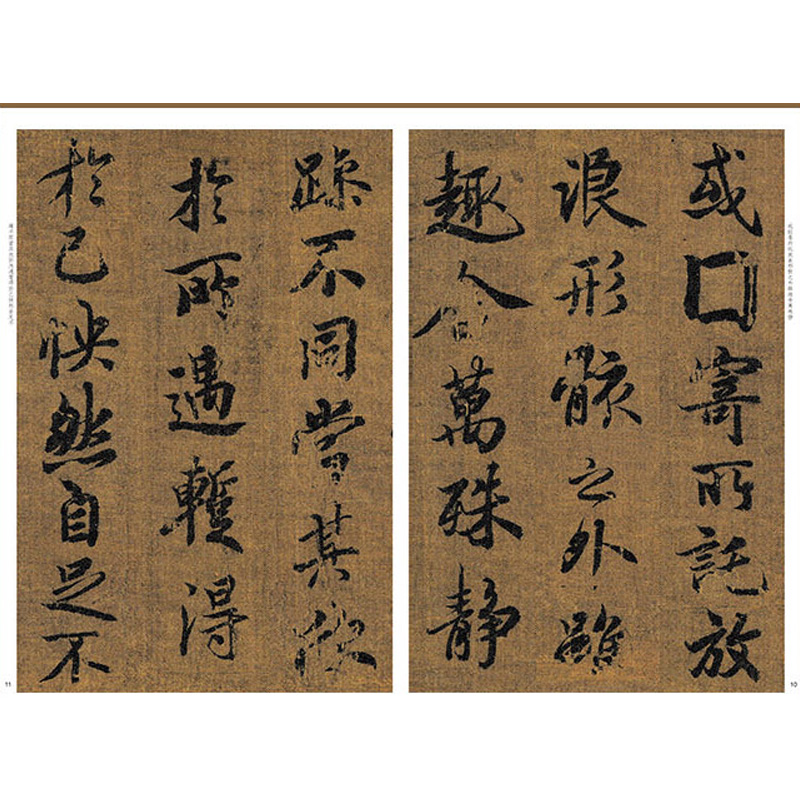 或口寄所託放
浪形骸之外雖
趣舍萬殊静
10
躁不同當其欣
於所遇蹔得
於己怏然自足不
11